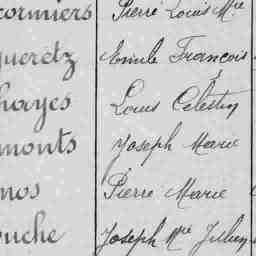 cormiers Pierre Louis Mie
queretz Emile François
hayes Louis Célestin
monts Joseph Marie
nos Pierre Marie
ouche Joseph Mie Jullien